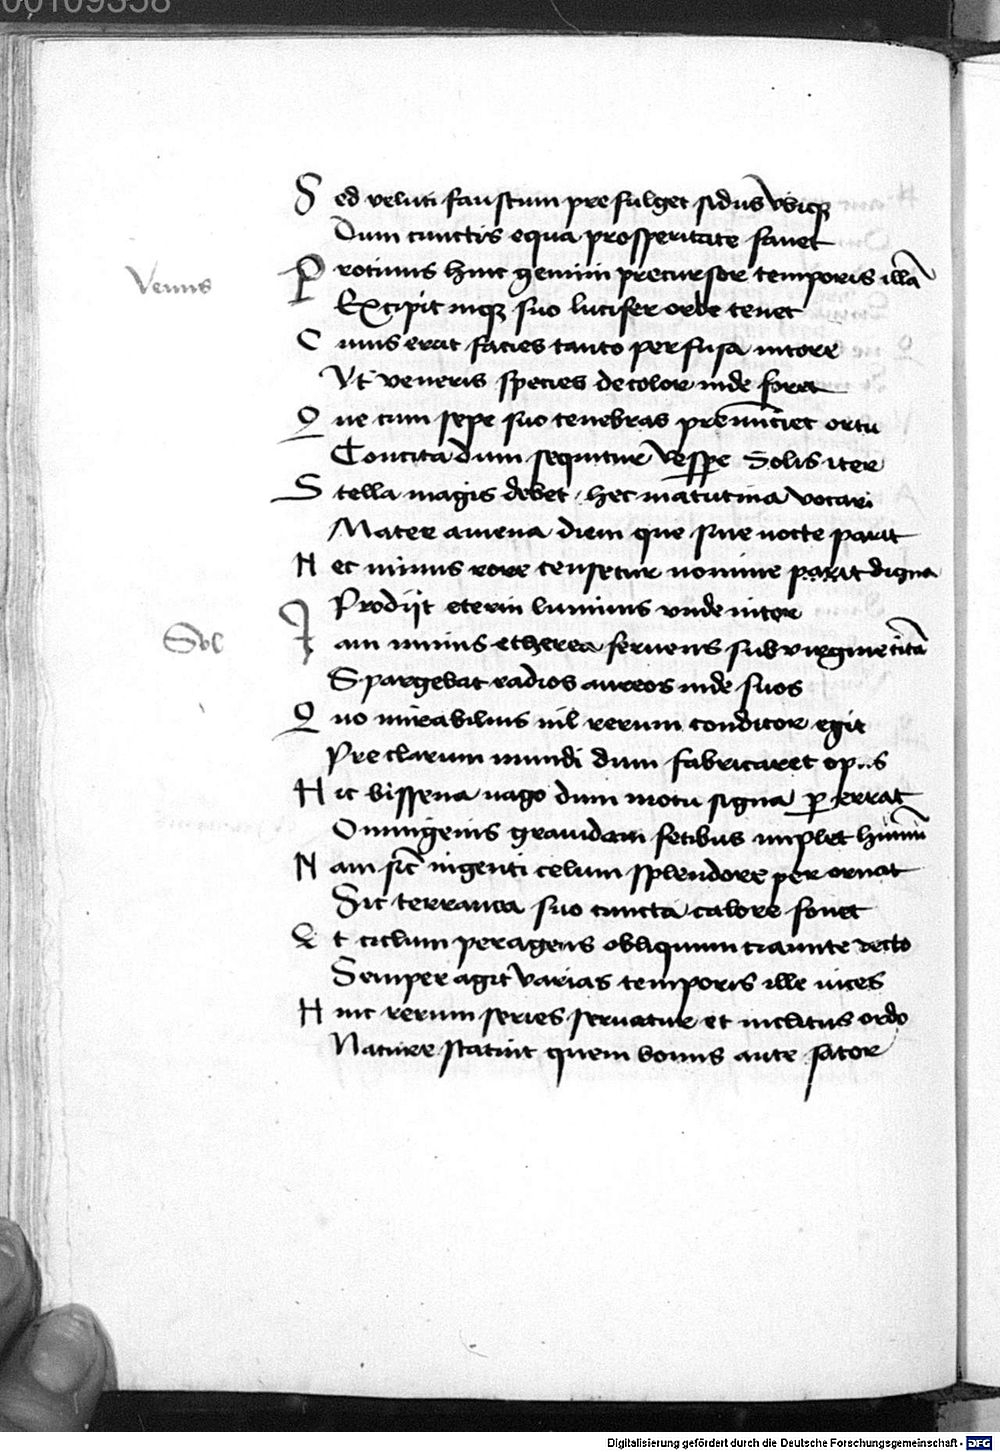 00109358
Sed veluti faustum prefulget sidus vbiqꝫ
Dum cunctis equa prosperitate fauet
Venus
Protinus hinc gemini precursor temporis illā
Excipit inqꝫ suo lucifer orbe tenet
Cuius erat facies tanto perfusa nitore
Vt veneris species decolor inde foret
Que cum sepe suo tenebras prenūciet ortu
Concita dum sequitur vespe Solis iter
Stella magis debet hec matutina vocari
Mater amena diem que sine nocte parit
Nec minus rore censetur nomine digna
Prodijt eterni luminis vnde nitor
Sol
Iam nimis etherea feruens sub virgine titā
Spargebat radios aureos inde suos
Quo mirabilius nil rerum conditor egit
Preclarum mundi dum fabricaret opus
Hic bissena uago dum motu signa ꝑerrat
Omnigenis grauidam fetibus implet
Nam sic̄ ingenti celum splendore perornat
Sic terranea suo cuncta calore fouet
Et ciclum peragens obliquum tramite recto
Semper agit varias temporis ille uices
Hinc rerum series seruatur et inclitus ordo
Nature statuit quem bonus ante sator
Digitalisierung gefördert durch die Deutsche Forschungsgemeinschaft - DFG